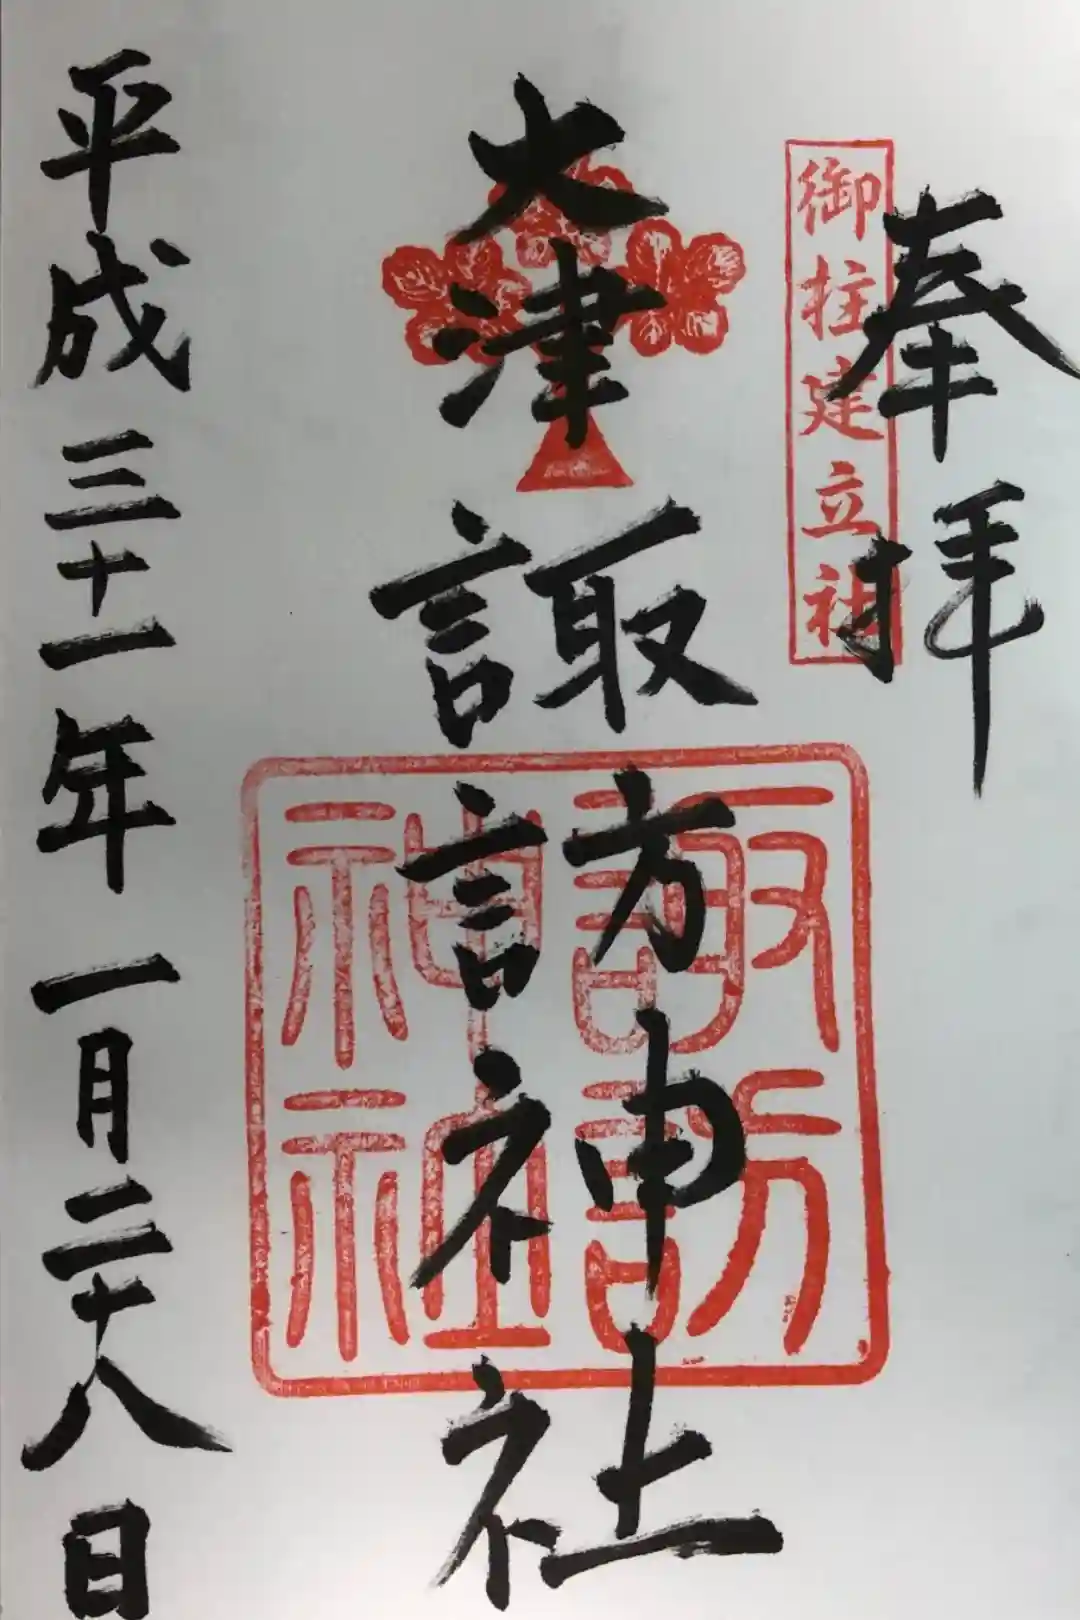 奉拝
御柱建立社
大津諏訪神社
諏訪
神社
平成三十一年一月二十八日